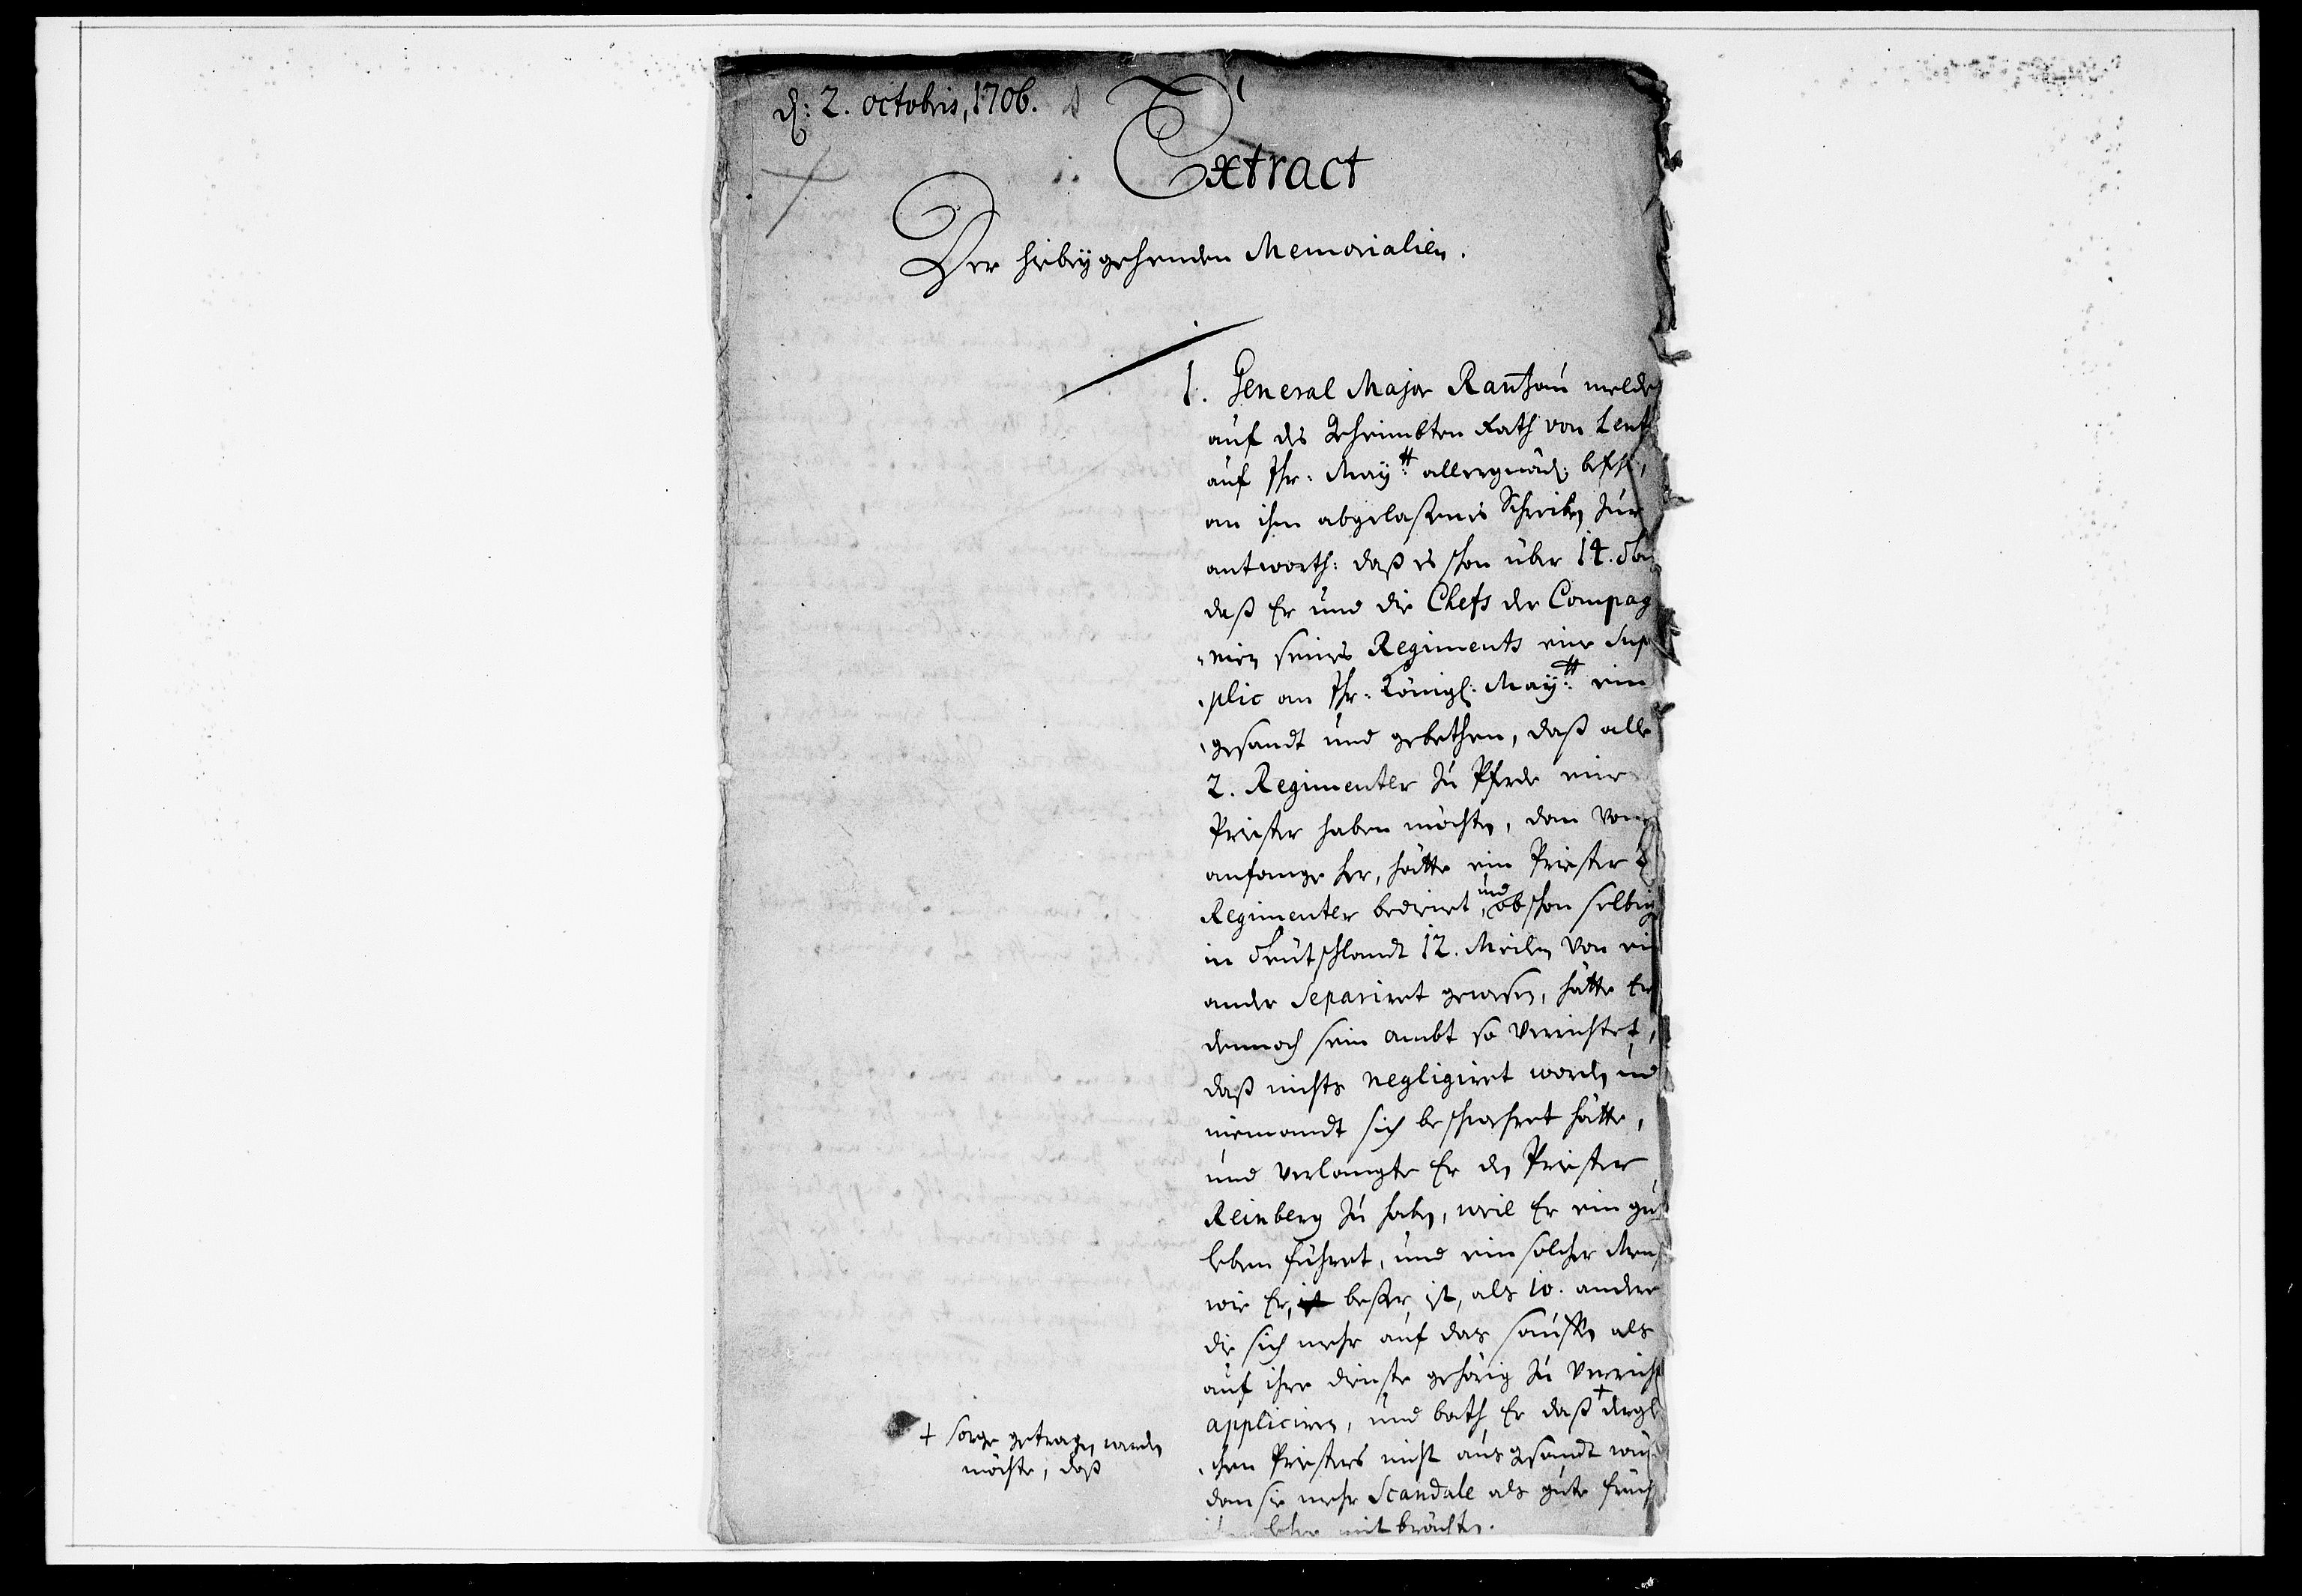 d: 2. octobris, 1706.
Extract
Der hiebeygehenden Memorialien.
1. General Major Rantzau melde
auf des Geheimbten Rath von Lent
auf Ihr: May:tt allergnäd: befehl,
an ihm abgelaßenes Schreiben zur
antworth: daß es schon über 14.
daß Er und die Chefs der Compag
nien seines Regiments eine Sup
plic an Ihr: Königl: May:tt ein
gesandt und gebethen, daß alle
2. Regimenter zu Pferde eine
Priester haben möchten, dan von
anfange her, hätte ein Priester 2
Regimenter bedienet, und ob schon selbig
in Teütschlandt 12. Meilen von ein
ander Separiret gewesen, hätte Er
dennoch sein ambt so verrichtet,
daß nichts negligiret worden und
niemandt sich beschwehret hätte,
und verlangte Er den Priester
Reinberg zu haben, weil Er ein gut
leben führet, und ein solcher Mens
wie Er, ist beßer ist, als 10. andere
die sich mehr auf das sauffen als
auf ihre dienste gehörig zu verricht
appliciren, und bath Er daß + dergl
chen Priesters nicht ausgesandt wür
dan sie mehr Scandale als gute früch
lehre mit brächten.
+ sorge getragen werden
möchte, daß